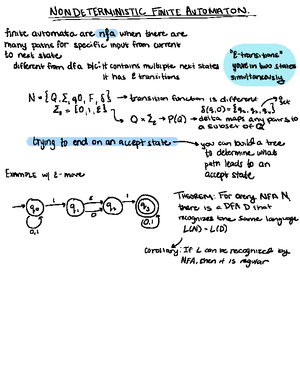 NONDETERMINISTIC FINITE AUTOMATON.
finite automata are nfa when there are
many paths for specific input from current
to next state
different from dfa b/c: it contains multiple next states
it has ε tranitions
"ε-transitions"
you're in two states
simultaneously
N = {Q, Σ, q0, F, δ} → transition function is different
set
δ(q0,0) = {q1, q2, q3}
Σε = {0,1,ε}
Q × Σε → P(Q) → delta maps any pairs to
a subset of Q
trying to end on an accept state → you can build a tree
to determine what
path leads to an
accept state
EXAMPLE w/ ε-move
q0 1 q1 ε 0 q2 1 q3
0,1 0,1
THEOREM: For any NFA N,
there is a DFA D that
recognizes the same language
L(N) = L(D)
corollary: If L can be recognized by
NFA, then it is regular